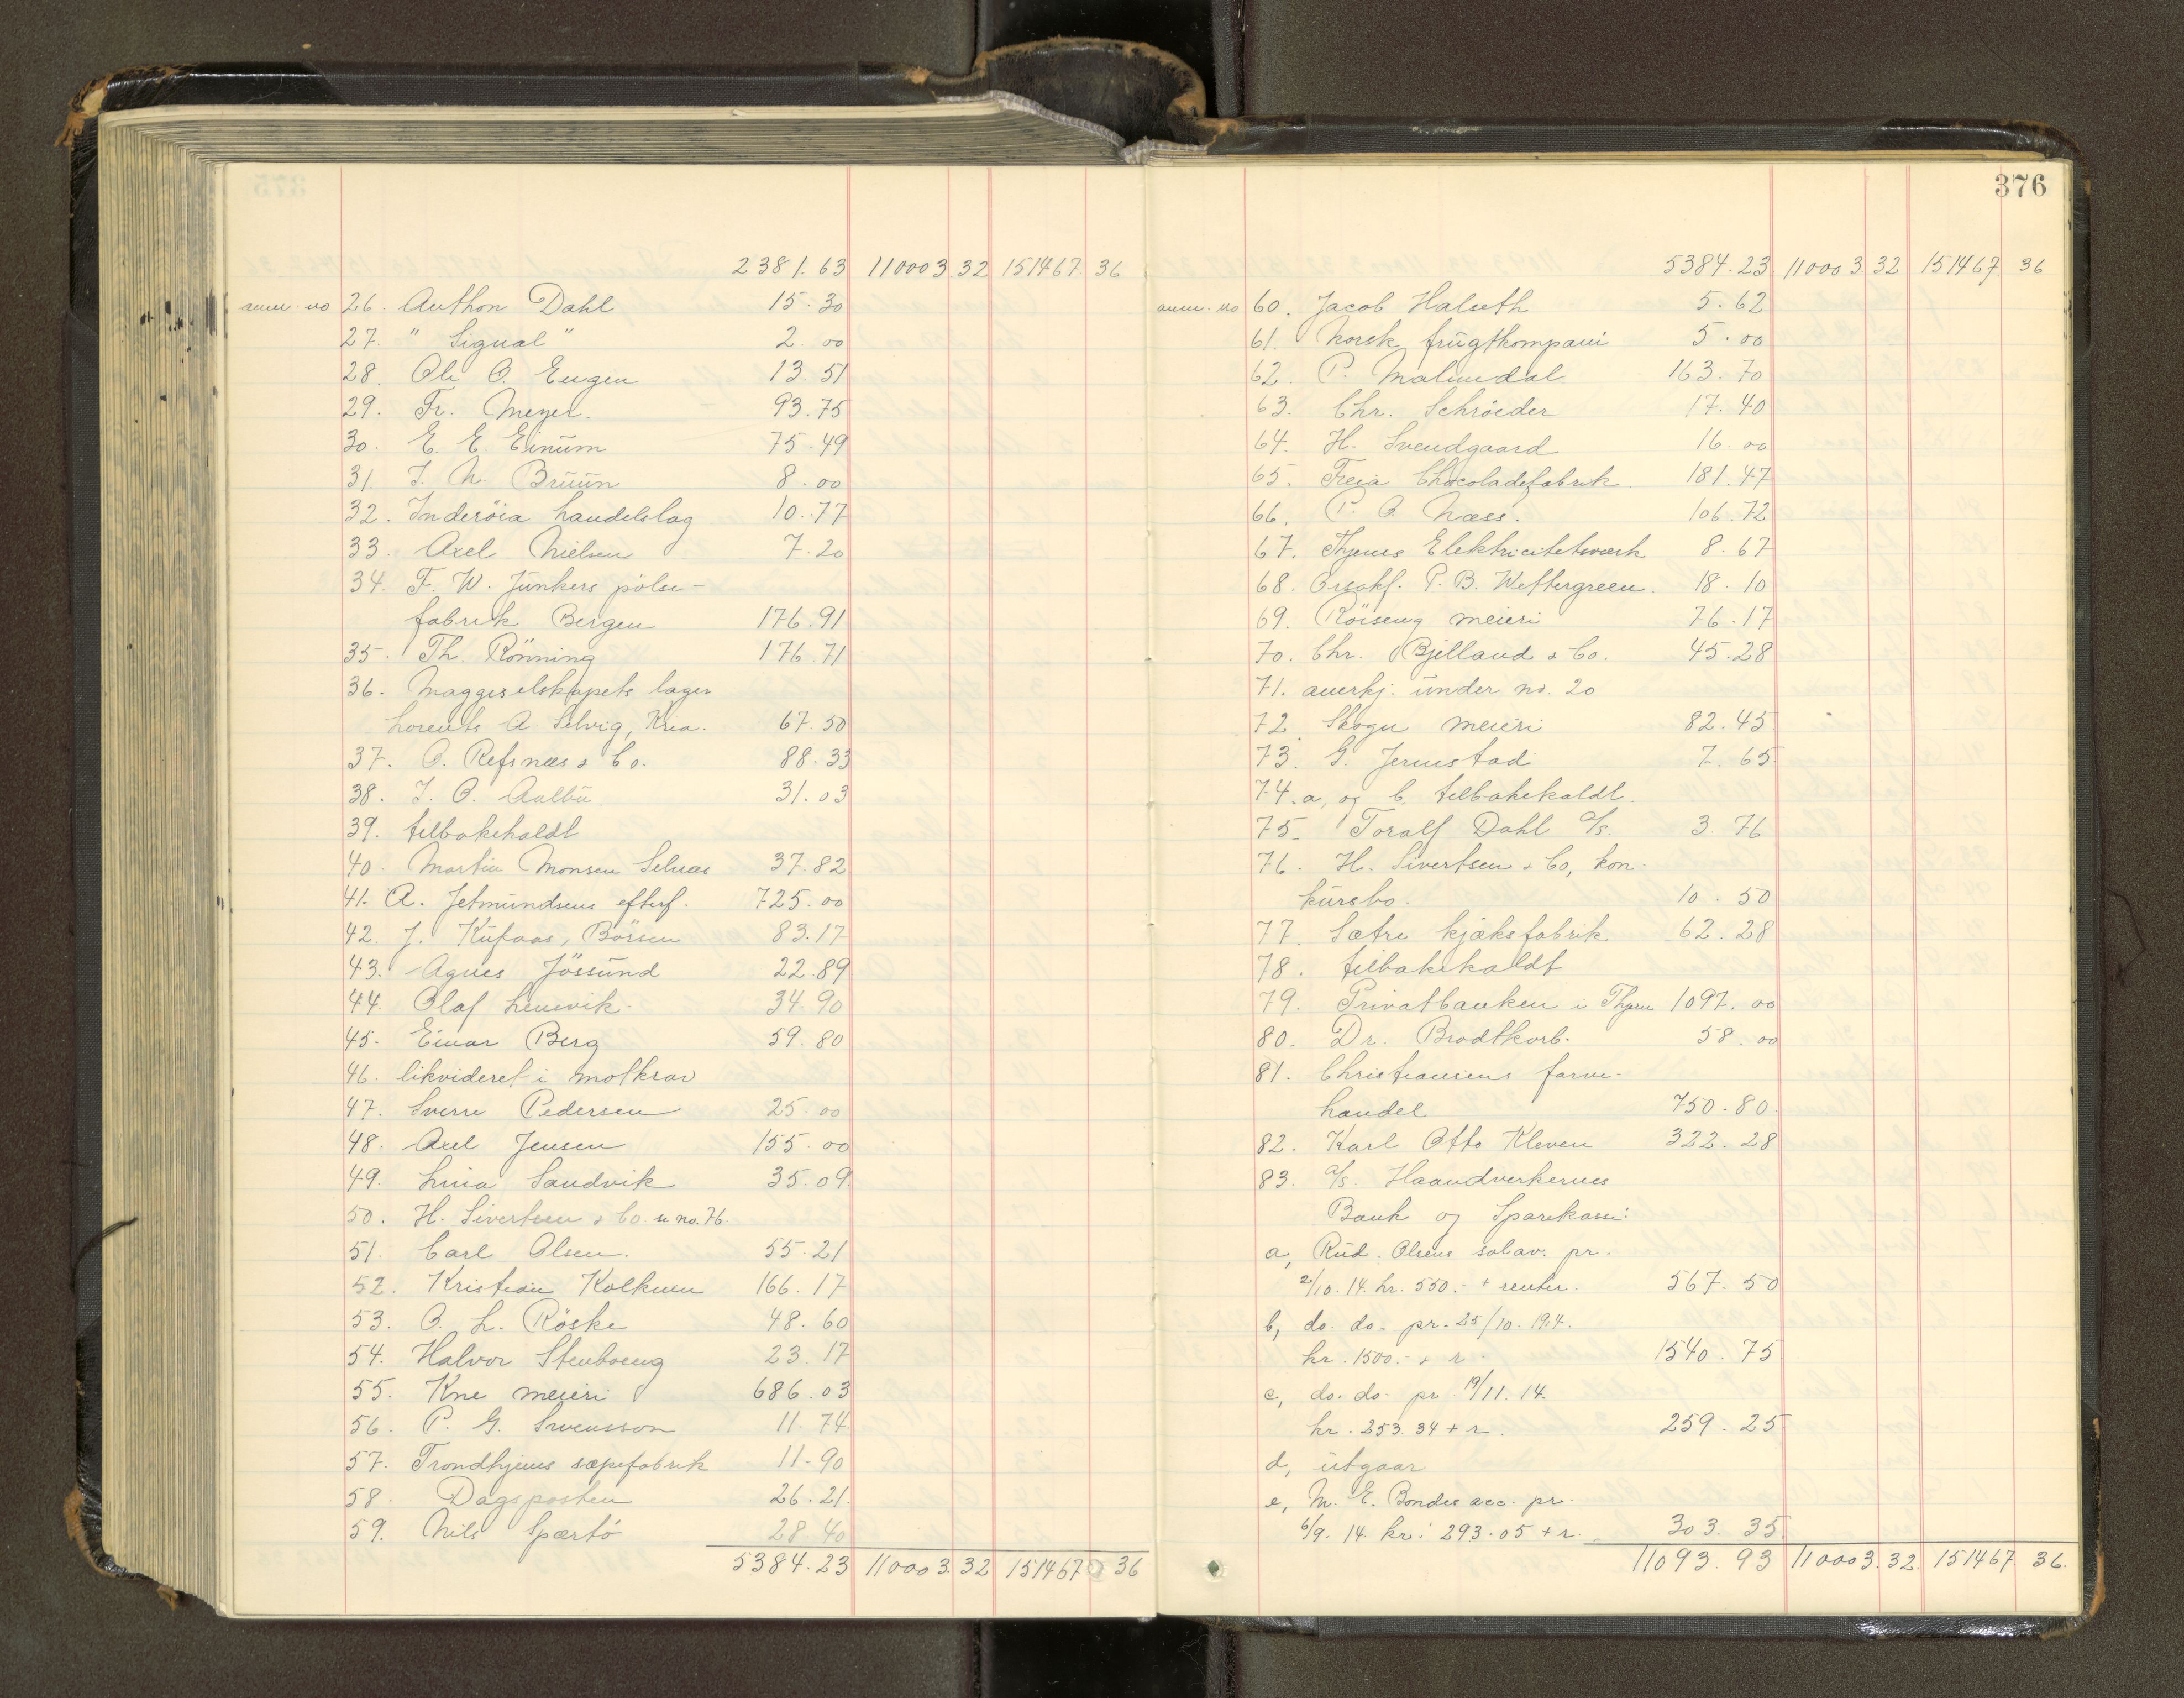 2381.63 11000 3.32 151467. 36
anm. no 26. Anthon Dahl 15.30
27. "Signal" 2.00
28. Ole O. Engen 13.51
29. Fr. Meyer. 93.75
30. E. E. Einum 75.49
31. J. N. Bruun 8.00
32. Inderöia handelslag 10.77
33. Axel Nielsen 7.20
34. F. W. Junkers pölse-
fabrik Bergen 176.91
35. Th. Rönning 176.71
36. Maggiselskapets lager
Lorents A Selvig, Kria. 67.50
37. O. Refsnes & Co. 88.33
38. J. O. Aalbu 31.03
39. tilbakekaldt
40. Martin Monsen Selnæs 37.82
41. A. Jetmundsens efterf. 725.00
42. J. Kufaas, Börsen 83.17
43. Agnes Jössund 22.89
44. Olaf Lenvik. 34.90
45. Einar Berg 59.80
46. likvideret i motkrav
47. Sverre Pedersen 25.00
48. Axel Jensen 155.00
49. Lina Sandvik 35.09
50. H. Sivertsen & Co. se no. 76.
51. Carl Olsen. 55.21
52. Kristian Kolkinn 166.17
53. O. L. Röske 48.60
54. Halvor Stenboeng 23.17
55. Kne meieri 686.03
56. P. G. Svensson 11.74
57. Trondhjems sæpefabrik 11.90
58. Dagsposten 26.21.
59. Nils Spærtö 28.40
5384.23 11000 3.32 151467 36
376
5384.23 11000 3.32 151467 36
anm. no 60. Jacob Halseth 5.62
61. Norsk frugtkompani 5.00
62. P. Malmedal 163.70
63. Chr. Schröeder 17.40
64. H. Svendgaard 16.00
65. Freia Chocoladefabrik 181.47
66. P. O. Næss. 106.72
67. Thjems Elektricitetsværk 8.67
68. Orsakf. P. B. Wettergreen. 18.10
69. Röiseng meieri 76.17
70. Chr. Bjelland & Co. 45.28
71. anerkj. under no. 20
72. Skogn meieri 82.45
73. G. Jermstad 7.65
74. a, og b, tilbakekaldt.
75. Toralf Dahl a/s. 3.76
76. H. Sivertsen & Co, kon-
kursbo. 10.50
77. Sætre kjæksfabrik. 62.28
78. tilbakekaldt
79. Privatbanken i Thjem 1097.00
80. Dr. Brodtkorb. 58.00
81. Christiansens farve-
handel 750.80.
82. Karl Otto Kleven 322.28
83. a/s. Haandverkernes
Bank og Sparekasse:
a, Rud. Olsens solav. pr.
2/10. 14. kr. 550.- + renter. 567.50
b, do. do. pr. 25/10. 1914.
kr. 1500.- + r. 1540.75
c, do. do. pr. 19/11. 14.
kr. 253.34 + r. 259.25
d, utgaar
e, M. E. Bondes acc. pr.
6/9. 14. kr: 293.05 + r. 303.35.
11093.93 11000 3.32. 151467 36.